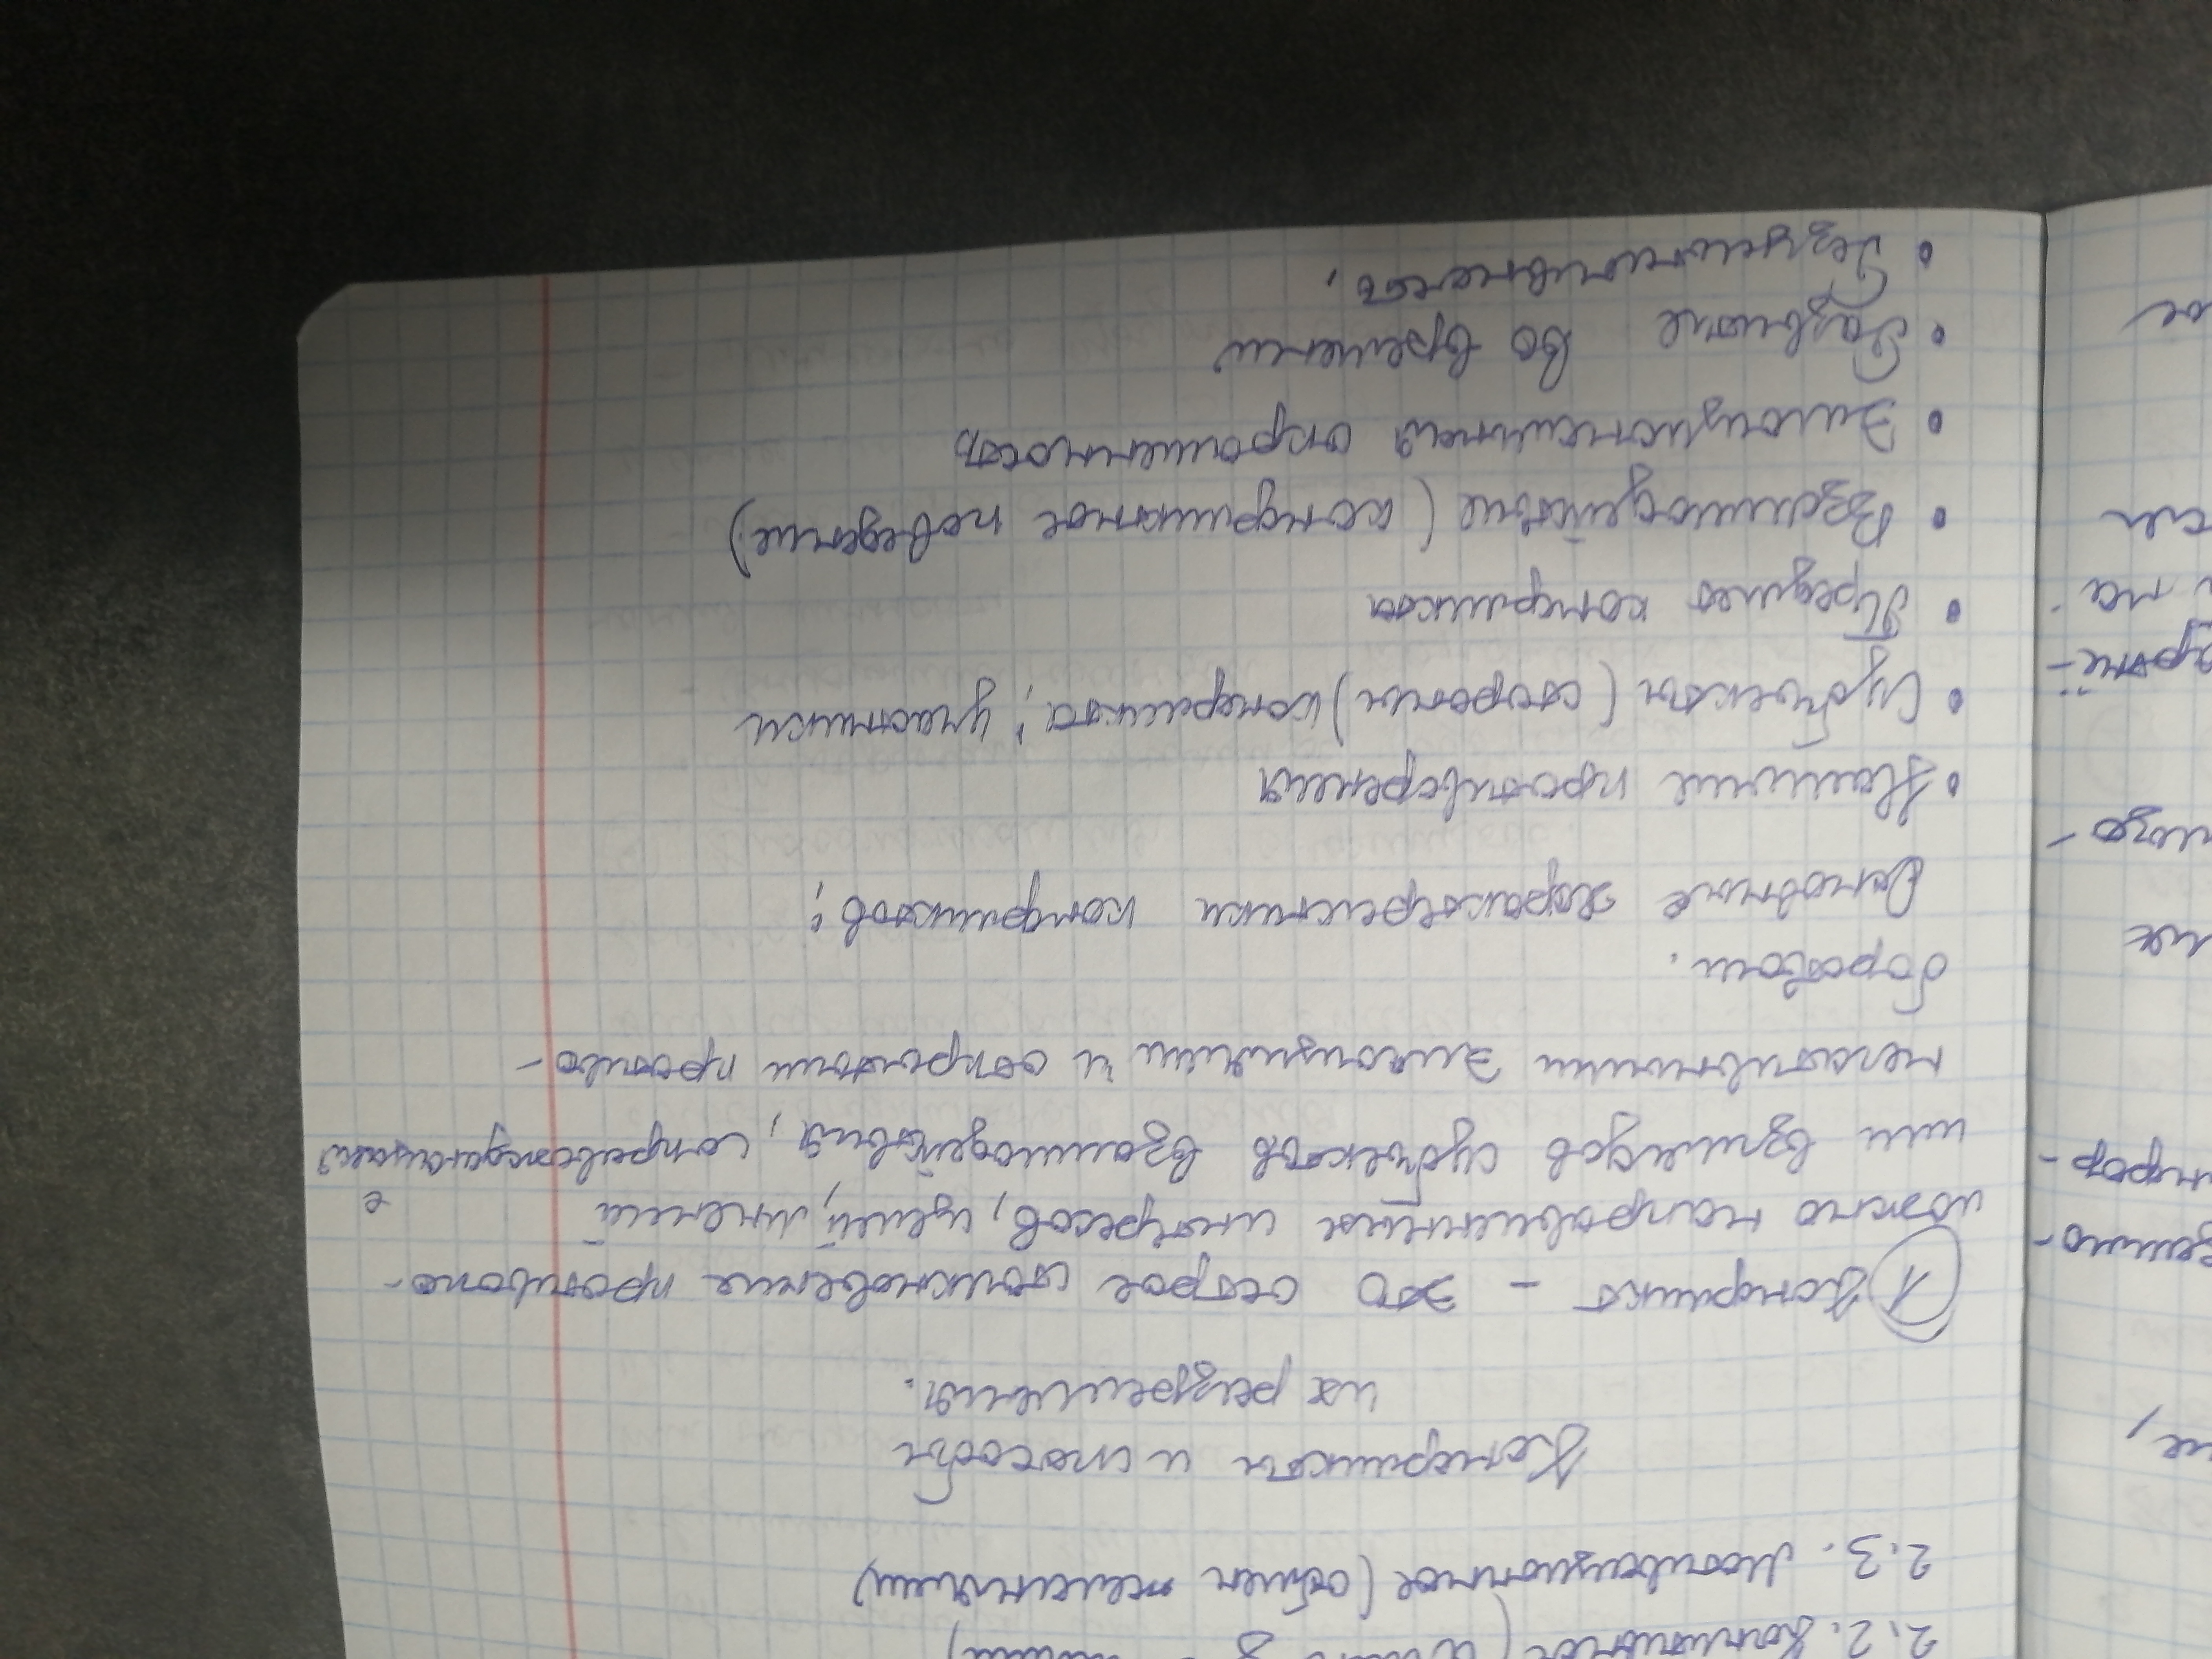 2.2. Когнитивное (
2.3. Мотивационное (обмен желаниями)
Конфликты и способы
их разрешения.
1 Конфликт - это острое столкновение противопо-
ложно направленных интересов, целей, мнений
или взглядов субъектов взаимодействия, сопровождающееся
негативными эмоциями и открытым противо-
борством.
Основные характеристики конфликтов:
• Наличие противоречия
• Субъекты (стороны) конфликта; участники
• Предмет конфликта
• Взаимодействие (конфликтное поведение)
• Эмоциональная окрашенность
• Развитие во времени
• Результативность.